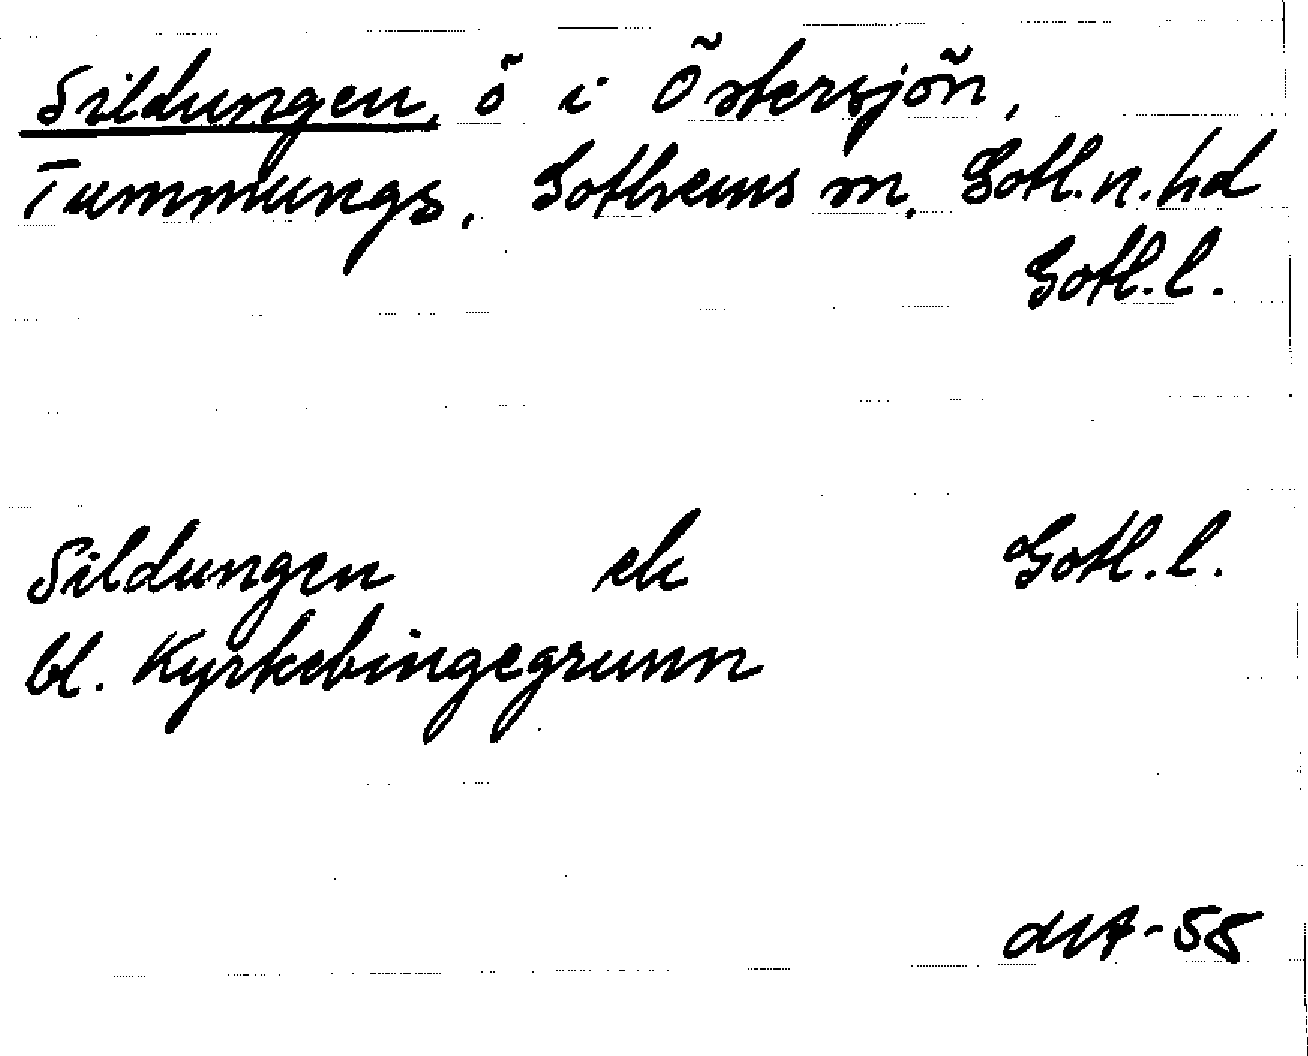 Sildungen, ö i Östersjön,
Tummungs, Gothems sn, Gotl.n.hd
Gotl.l.
Sildungen ek Gotl.l.
bl. Kyrkebingegrunn
-58